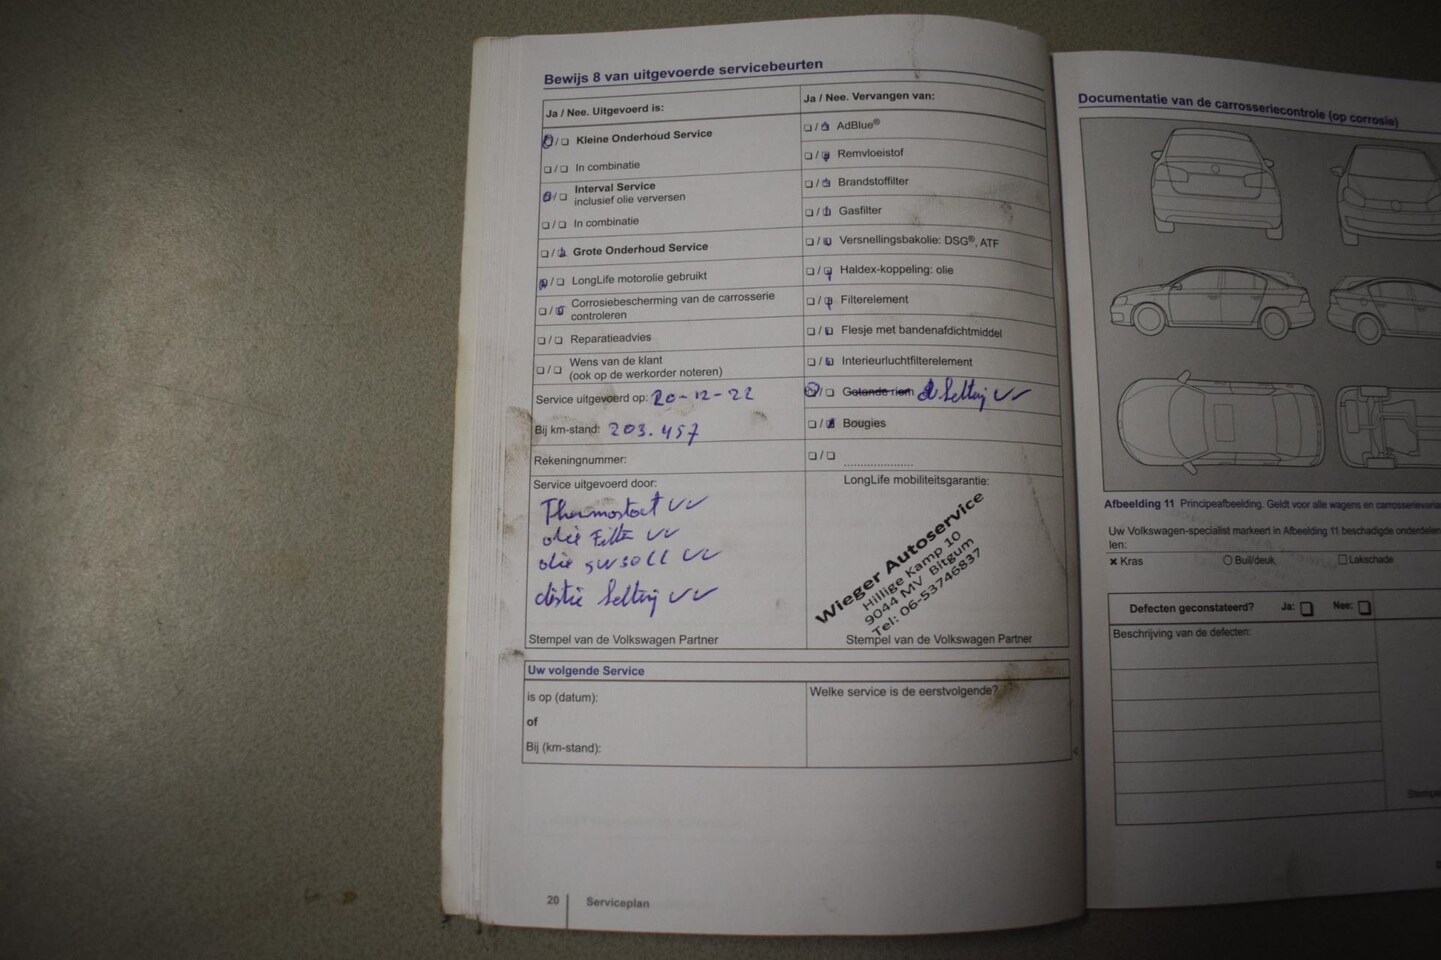 Bewijs 8 van uitgevoerde servicebeurten
Ja / Nee. Uitgevoerd is:
Kleine Onderhoud Service
In combinatie
Interval Service
inclusief olie verversen
In combinatie
Grote Onderhoud Service
LongLife motorolie gebruikt
Corrosiebescherming van de carrosserie
controleren
Reparatieadvies
Wens van de klant
(ook op de werkorder noteren)
Service uitgevoerd op: 20-12-22
Bij km-stand: 203.457
Rekeningnummer:
Service uitgevoerd door:
Thermostaat
olie
olie
distie
Stempel van de Volkswagen Partner
Ja / Nee. Vervangen van:
AdBlue®
Remvloeistof
Brandstoffilter
Gasfilter
Versnellingsbakolie: DSG®, ATF
Haldex-koppeling: olie
Filterelement
Flesje met bandenafdichtmiddel
Interieurluchtfilterelement
Getande riem
Bougies
LongLife mobiliteitsgarantie:
Wieger Autoservice
Hillige Kamp 10
9044 MV Bitgum
Tel: 06-53746837
Stempel van de Volkswagen Partner
Uw volgende Service
is op (datum):
of
Bij (km-stand):
Welke service is de eerstvolgende?
20
Serviceplan
Documentatie van de carrosseriecontrole (op corrosie)
Afbeelding 11 Principeafbeelding. Geldt voor alle wagens en
Uw Volkswagen-specialist markeert in Afbeelding 11 beschadigde
len:
Kras
Buil/deuk
Lakschade
Defecten geconstateerd? Ja: Nee:
Beschrijving van de defecten: